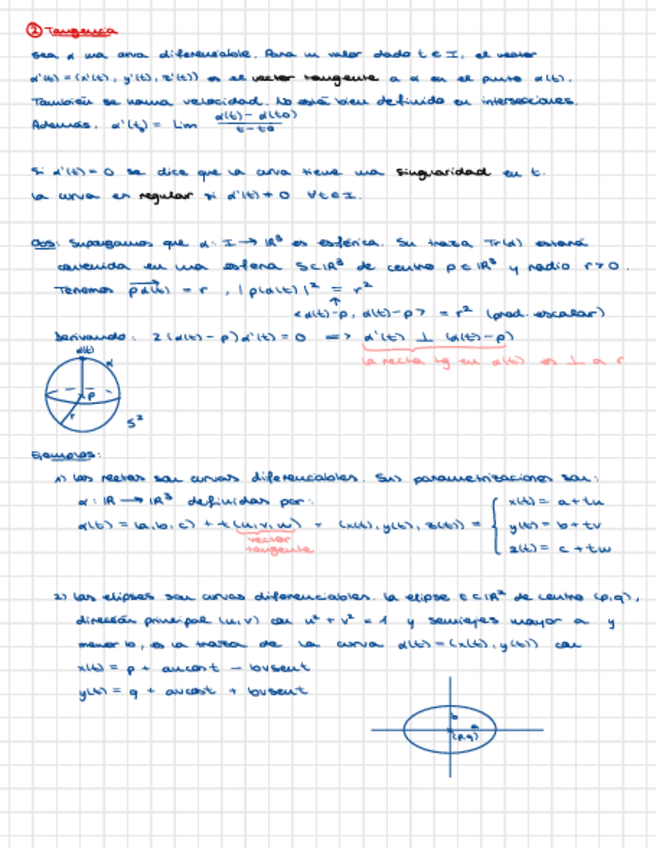 ② Tangencia
Sea α una curva diferenciable. Para un valor dado t ∈ I, el vector
α'(t) = (x'(t), y'(t), z'(t)) es el vector tangente a α en el punto α(t).
También se llama velocidad. No está bien definido en intersecciones.
Además, α'(t₀) = lim α(t) - α(t₀) / t - t₀
Si α'(t) = 0 se dice que la curva tiene una singularidad en t.
La curva es regular si α'(t) ≠ 0 ∀t ∈ I.
Obs: Supongamos que α: I → ℝ³ es esférica. Su traza Tr(α) estará
contenida en una esfera S ⊂ ℝ³ de centro p ∈ ℝ³ y radio r > 0.
Tenemos pα(t) = r, |pα(t)|² = r²
<α(t)-p, α(t)-p> = r² (prod. escalar)
Derivando: 2(α(t)-p)α'(t) = 0 => α'(t) ⊥ (α(t)-p)
la recta tg en α(t) es ⊥ a r
α(t)
α
p
r
S²
Ejemplos:
1) Las rectas son curvas diferenciables. Sus parametrizaciones son:
α: ℝ → ℝ³ definidas por:
α(t) = (a, b, c) + t(u, v, w) = (x(t), y(t), z(t)) = { x(t) = a + tu
y(t) = b + tv
z(t) = c + tw
vector
tangente
2) Las elipses son curvas diferenciables. La elipse E ⊂ ℝ² de centro (p,q),
dirección principal (u,v) con u² + v² = 1 y semiejes mayor a y
menor b, es la traza de la curva α(t) = (x(t), y(t)) con
x(t) = p + aucost - bvsent
y(t) = q + avcost + busent
b
a
(p,q)